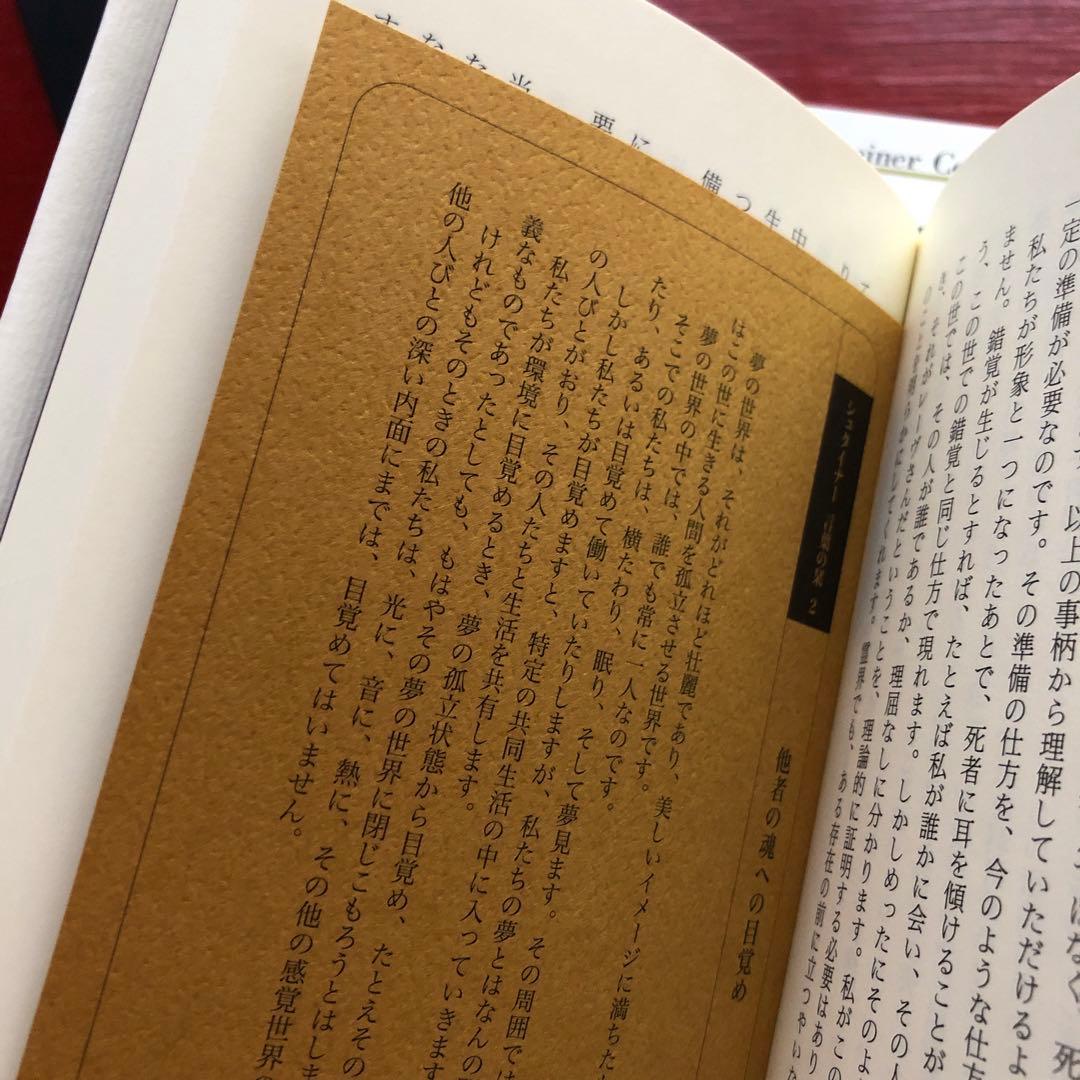 はなく、死
以上の事柄から理解していただけるよ
一定の準備が必要なのです。その準備の仕方を、今のような仕方
私たちが形象と一つになったあとで、死者に耳を傾けることが
ません。錯覚が生じるとすれば、たとえば私が誰かに会い、その人
う、この世での錯覚と同じ仕方で現れます。しかしめったにそのよ
この世では、その人が誰であるか、理屈なしに分かります。私がこの
き、それがレーヴさんだということを、理論的に証明する必要はあり
のことを明らかにしてくれます。霊界でも、ある存在の前に立つやいな
シュタイナー 言葉の栞 2
他者の魂への目覚め
夢の世界は、それがどれほど壮麗であり、美しいイメージに満ちた
はこの世に生きる人間を孤立させる世界です。
夢の世界の中では、誰でも常に一人なのです。
そこでの私たちは、横たわり、眠り、そして夢見ます。その周囲では
たり、あるいは目覚めて働いていたりしますが、私たちの夢とはなんの
しかし私たちが目覚めますと、特定の共同生活の中に入っていきます
の人びとがおり、その人たちと生活を共有します。
私たちが環境に目覚めるとき、夢の孤立状態から目覚め、たとえその
義なものであったとしても、もはやその夢の世界に閉じこもろうとはしま
けれどもそのときの私たちは、光に、音に、熱に、その他の感覚世界の
他の人びとの深い内面にまでは、目覚めてはいません。
einer Co